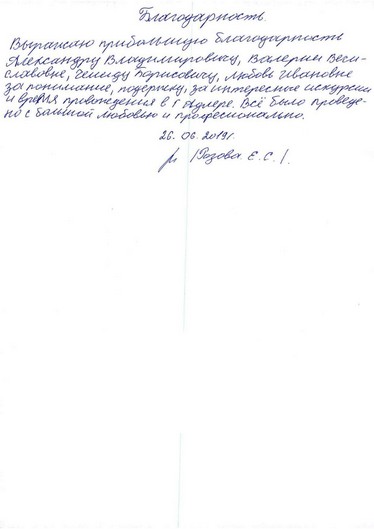 Благодарность.
Выражаю прибольшую благодарность
Александру Владимировичу, Валерии Веги-
славовне, Гениду Борисовичу, Любовь Ивановне
за понимание, подержку, за интересное искурсии
и время провождения в г Адлере. Всё было проведе-
но с большой любовью и профессионально.
26. 06. 2019г.
/Розова Е.С./.